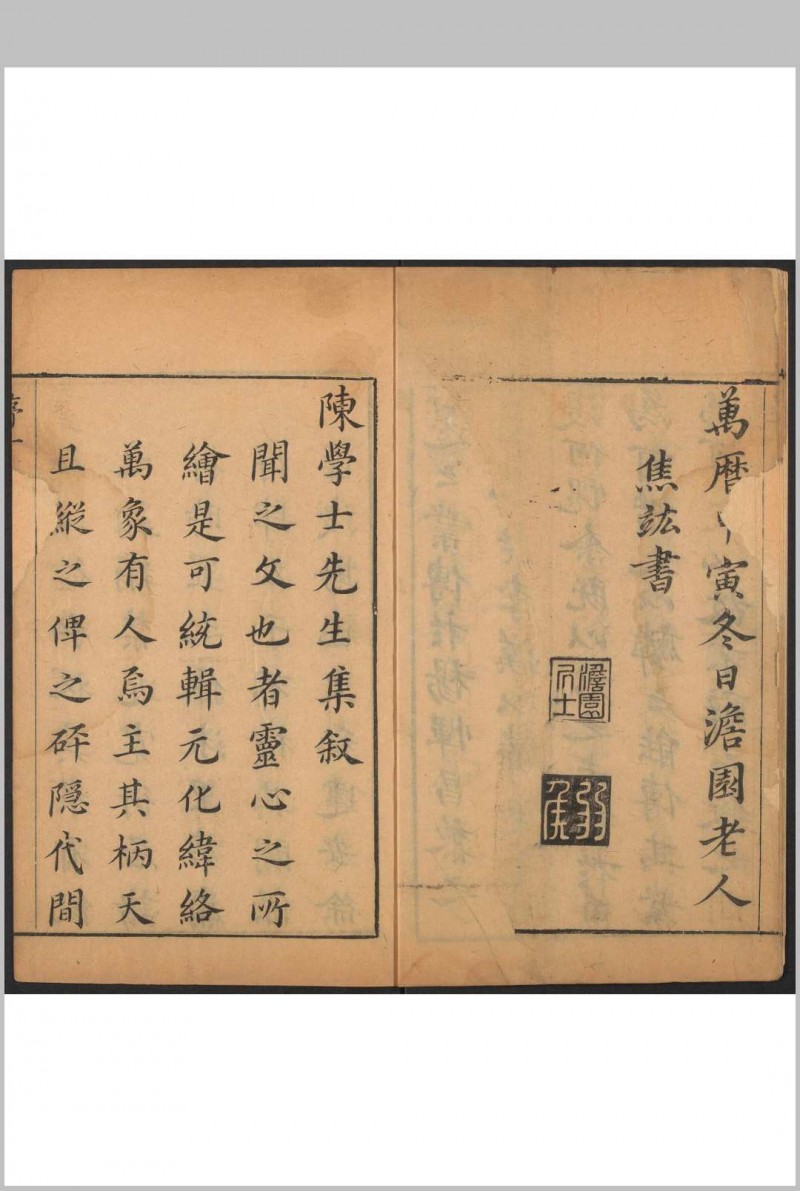 萬曆寅冬日澹園老人
焦竑書
澹園
焦
陳學士先生集敘
聞之文也者靈心之所
繪是可統輯元化緯絡
萬象有人焉主其柄天
且縱之俾之砕隱代間
序一